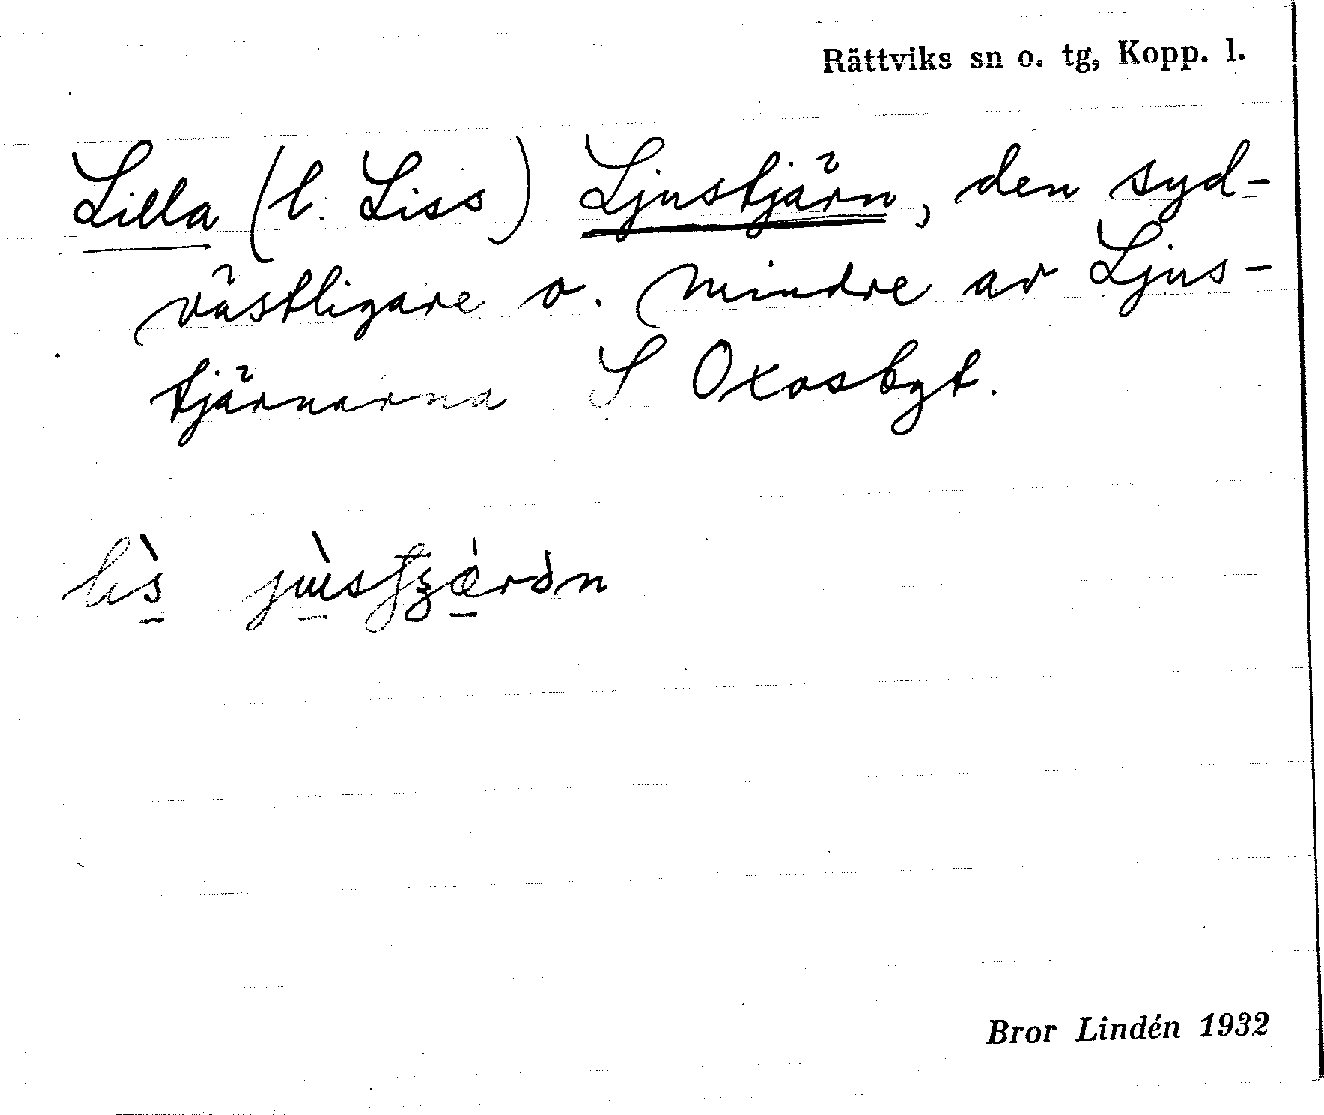 Rättviks sn o. tg, Kopp. l.
Lilla (l. Liss) Ljustjärn, den syd-
västligare o. mindre av Ljus-
tjärnarna S Oxosbgt.
Bror Lindén 1932